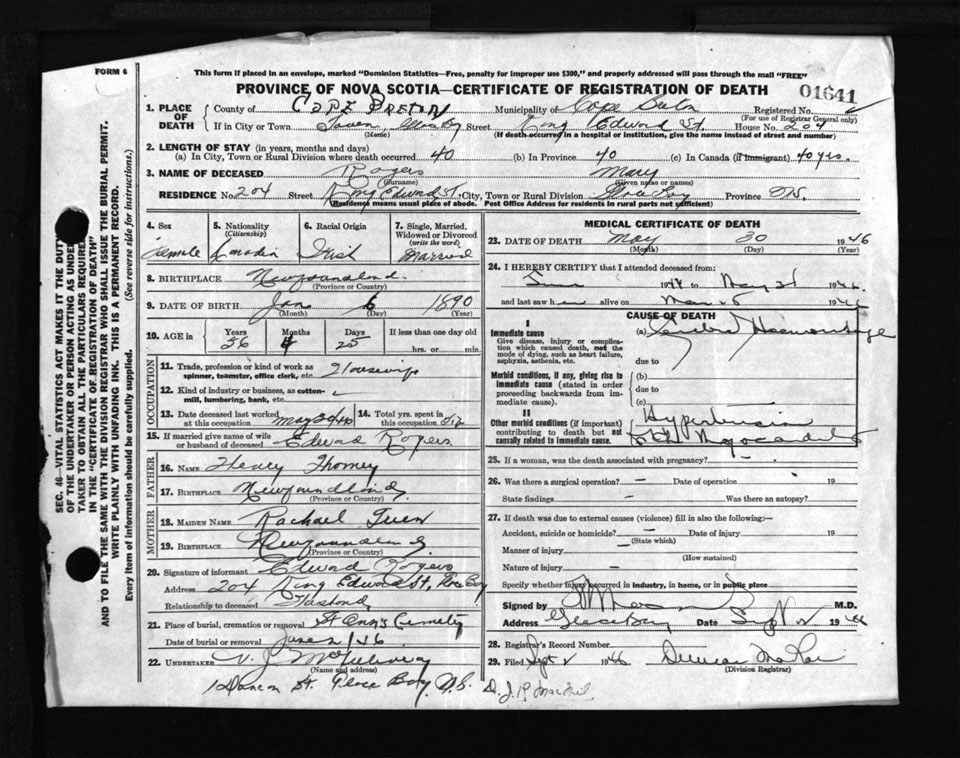 FORM 6
This form if placed in an envelope, marked "Dominion Statistics—Free, penalty for improper use $300," and properly addressed will pass through the mail "FREE"
PROVINCE OF NOVA SCOTIA—CERTIFICATE OF REGISTRATION OF DEATH
01641
1. PLACE OF DEATH
County of CAPE BRETON Municipality of Cape Breton Registered No.
(For use of Registrar General only)
If in City or Town Street King Edward St. House No. 204
(Name) (If death occurred in a hospital or institution, give the name instead of street and number)
2. LENGTH OF STAY (in years, months and days)
(a) In City, Town or Rural Division where death occurred 40 (b) In Province 40 (c) In Canada (if immigrant) 40 yrs.
3. NAME OF DECEASED Rogers Mary
(Surname) (Given name or names)
RESIDENCE No. 204 Street King Edward St. City, Town or Rural Division Glace Bay Province N.S.
(Residence means usual place of abode. Post Office Address for residents in rural parts not sufficient)
4. Sex Female
5. Nationality (Citizenship) Canadian
6. Racial Origin Irish
7. Single, Married, Widowed or Divorced (write the word) Married
8. BIRTHPLACE Newfoundland.
(Province or Country)
9. DATE OF BIRTH Jan 1890
(Month) (Day) (Year)
10. AGE in Years 56 Months 4 Days 25 If less than one day old
hrs. or min.
OCCUPATION
11. Trade, profession or kind of work as spinner, teamster, office clerk, etc. Housewife
12. Kind of industry or business, as cotton-mill, lumbering, bank, etc.
13. Date deceased last worked at this occupation
14. Total yrs. spent in this occupation
15. If married give name of wife or husband of deceased Edward Rogers
FATHER
16. NAME Henry Thomey
17. BIRTHPLACE Newfoundland
(Province or Country)
MOTHER
18. MAIDEN NAME Rachael
19. BIRTHPLACE Newfoundland
(Province or Country)
20. Signature of informant Edward Rogers
Address 204 King Edward St, Glace Bay
Relationship to deceased Husband
21. Place of burial, cremation or removal St Ann's Cemetery
Date of burial or removal June
22. UNDERTAKER V. J. McGillivray
(Name and address)
St. Glace Bay N.S.
MEDICAL CERTIFICATE OF DEATH
23. DATE OF DEATH May 30 1946
(Month) (Day)
24. I HEREBY CERTIFY that I attended deceased from:
June to May 1946
and last saw her alive on 1946
CAUSE OF DEATH
I
Immediate cause
Give disease, injury or complication which caused death, not the mode of dying, such as heart failure, asphyxia, asthenia, etc.
(a) Haemorrhage
due to
Morbid conditions, if any, giving rise to immediate cause (stated in order proceeding backwards from immediate cause).
(b)
due to
(c)
II
Other morbid conditions (if important) contributing to death but not causally related to immediate cause.
Hypertension
Myocarditis
25. If a woman, was the death associated with pregnancy? —
26. Was there a surgical operation? — Date of operation 19
State findings — Was there an autopsy?
27. If death was due to external causes (violence) fill in also the following:—
Accident, suicide or homicide? — Date of injury 19
(State which)
Manner of injury
(How sustained)
Nature of injury —
Specify whether injury occurred in industry, in home, or in public place
Signed by M.D.
Address Glace Bay Date Sept 2 1946
28. Registrar's Record Number
29. Filed Sept 2 1946 Duncan MacRae
(Division Registrar)
SEC. 46—VITAL STATISTICS ACT MAKES IT THE DUTY
OF THE UNDERTAKER OR PERSON ACTING AS UNDER-
TAKER TO OBTAIN ALL THE PARTICULARS REQUIRED
IN THE "CERTIFICATE OF REGISTRATION OF DEATH"
AND TO FILE THE SAME WITH THE DIVISION REGISTRAR WHO SHALL ISSUE THE BURIAL PERMIT.
WRITE PLAINLY WITH UNFADING INK. THIS IS A PERMANENT RECORD.
Every item of information should be carefully supplied. (See reverse side for instructions.)